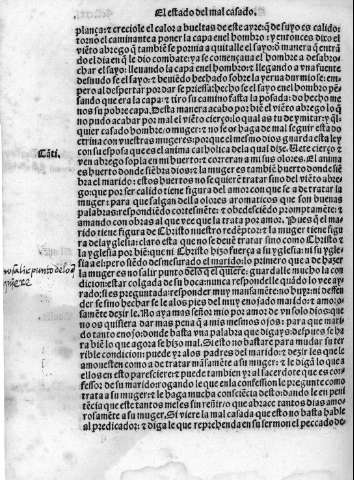 El estado del mal casado.
plança: τ creciole el calor a bueltas de este ayre: q̃ de suyo es calido:
torno el caminante a poner la capa en el hombro: τ entonces dito el
viẽto abrego q̃ tambiẽ se pornia a quitalle el sayo: ò manera q̃ entrã
do el dia en q̃ le dio combate: ya se començaua el hombre a desabro
char el sayo: lleuando la capa en el hombro: τ llegando a vna fuente
desnudo se el sayo: τ beuiẽdo bechado sobre la yerua durmio se: em
pero al despertar por dar se priessa: becho se el sayo en el hombro pẽ
sando que era la capa: τ tiro su camino fasta la posada: do hecho me
nos su pobre capa. Desta manera acabo por biẽ el viẽto abrego lo q̃
no pudo acabar por mal el viẽto cierço: lo qual as tu de ymitar: τ q̃l
quier casado hombre: o muger: τ no se os haga de mal seguir esta do
ctrina con vuestras mugeres: porque el mesmo dios guarda esta ley
con su esposa que es el anima catholica: de la qual dize. Uete cierço τ
Cãti.
ven abrego sopla en mi huerto: τ correran a mis olores. El anima
es huerto donde siẽbra dios: τ la muger es tambiẽ huerto donde siẽ
bra el marido: τ estos huertos no se quierẽ tratar sino del viẽto abre-
go: que por ser calido tiene figura del amor con que se a de tratar la
muger: para que salgan della olores aromaticos que son buenas
palabras: respondiẽdo cortesmẽte: τ obedesciẽdo promptamẽte: τ
amando con obras al que vee que la trata por amor. Pues q̃ el ma-
rido tiene figura de Christo nuestro redẽptor: τ la muger tiene figu
ra de la yglesia: claro esta que no se deuẽ tratar sino como Christo τ
la yglesia: por biẽ: que ni Christo hizo fuerça a su yglesia: ni su ygle
sia a el: pero siẽdo desmesurado el marido: lo primero que a de hazer
la muger es no salir punto delo q̃ el quiere: guardalle mucho la con
no salir punto delo q̃
dicion: estar colgada de su boca: nunca responde lle quãdo le vee ay-
rado: si es preguntada responder muy mansamẽte: no huyr: ni deffen
der se sino hechar se a los pies del muy enojado marido: τ amoro-
samẽte dezir le. No aya mas señor mio por amor de vn solo dios: que
no os quisiera dar mas pena q̃ a mis mesmos ojos: para que mari-
do tanto enojo: donde basta vna palabra que digays: despues se ha
ra biẽ lo que agora se hizo mal. Si esto no bastare para mudar su ter
rible condicion: puede yr a los padres del marido: τ dezir les que le
amonesten como a de tratar mãsamẽte a su muger: τ le digã lo que a
ellos en esto paresciere: τ puede tambien yr al sacerdote que es con-
fessor de su marido: rogando le que en la confession le pregunte como
trata a su muger: τ le haga mucha consciẽcia desto: dando le en peni
tẽcia que este tantos meses sin reñir: o que abrace tantos dias amo-
rosamẽte a su muger. Si viere la mal casada que esto no basta hable
al predicador: τ diga le que reprehenda en su sermon el peccado de